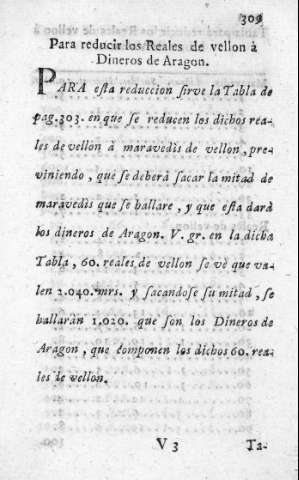 309
Para reducir los Reales de vellon à
Dineros de Aragon.
PARA esta reduccion sirve la Tabla de
pag. 303. en que se reducen los dichos rea-
les de vellon à maravedis de vellon, pre-
viniendo, que se deberà sacar la mitad de
maravedis que se hallare, y que esta darà
los dineros de Aragon. V. gr. en la dicha
Tabla, 60. reales de vellon se vè que va-
len 2.040. mrs. y sacandose su mitad, se
hallaràn 1.020. que son los Dineros de
Aragon, que componen los dichos 60. rea-
les de vellon.
V 3 Ta-